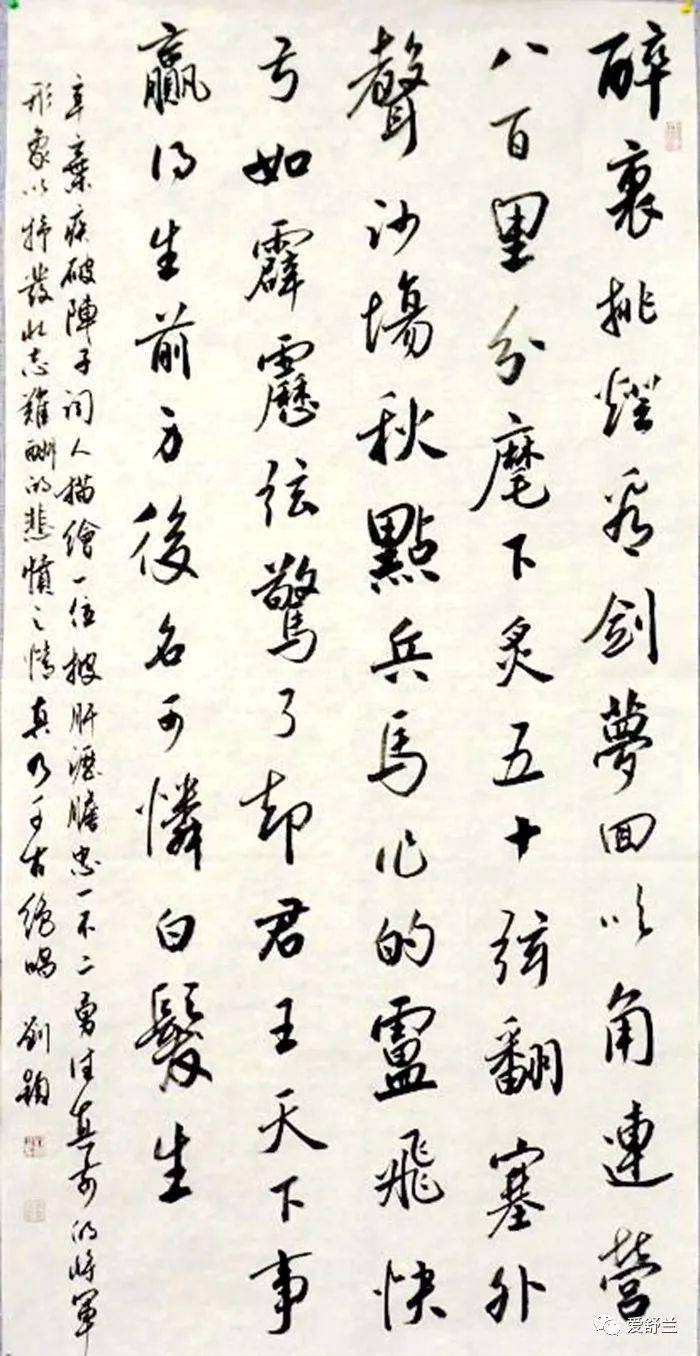 醉裏挑燈看剑夢回吹角連營
八百里分麾下炙五十弦翻塞外
聲沙場秋點兵馬作的盧飛快
弓如霹靂弦驚了却君王天下事
贏得生前身後名可憐白髮生
辛棄疾破陣子詞人描繪一位披肝瀝膽忠一不二勇往直前的將軍
形象以抒發壯志難酬的悲憤之情真乃千古絕唱 劉穎
爱舒兰